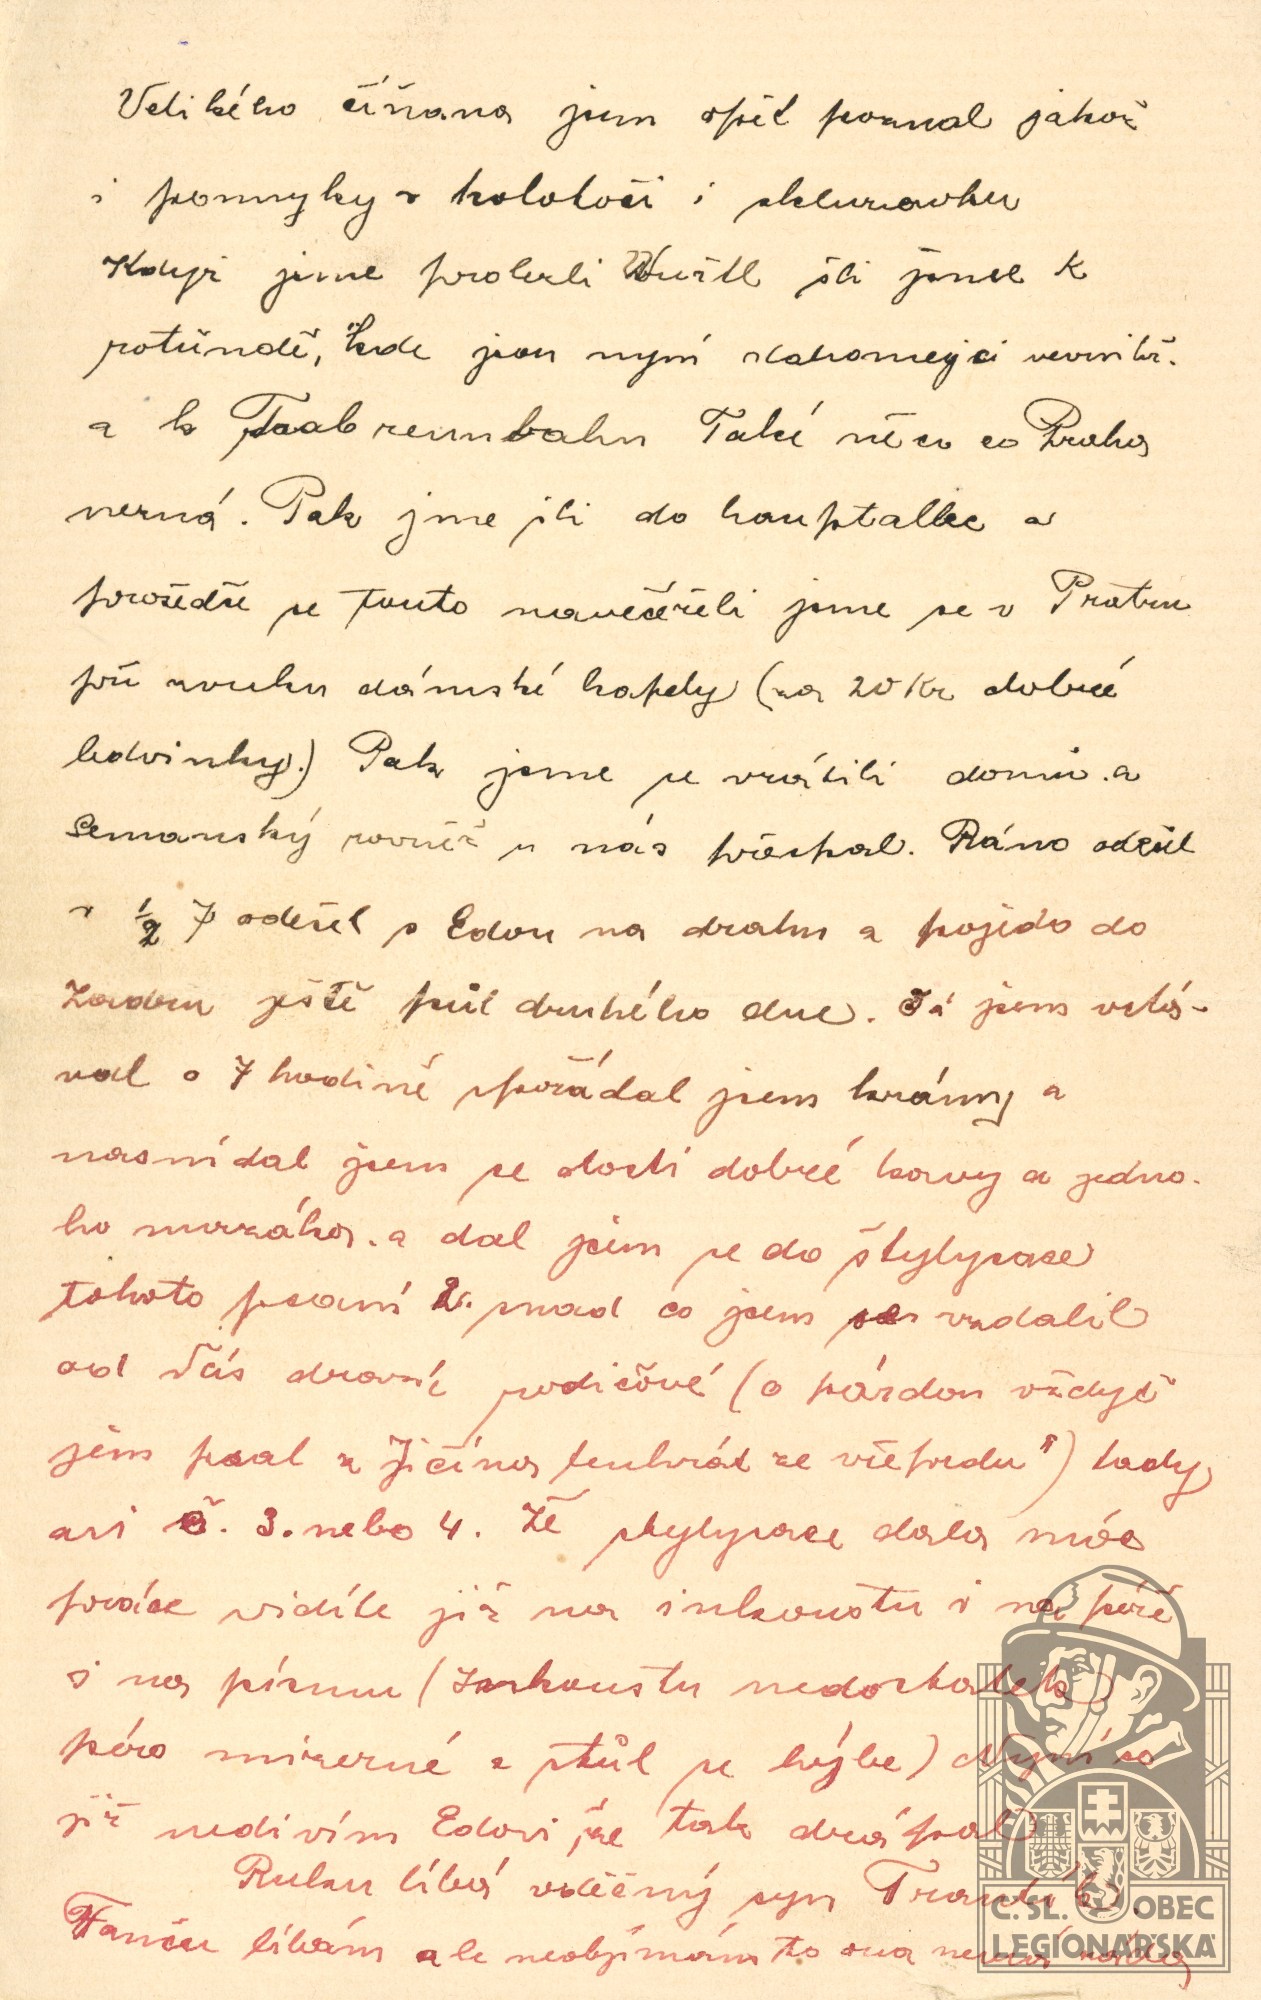 Velikého číňana jsem opět poznal jakož
i pomnyky v kolotoči i skluzavku
Když jsme prolezli Wuřstl šli jsme k
rotundě, kde jsou nyní dahomejci uvnitř.
a k Trabrennbahn Také něco co Praha
nezná. Pak jsme šli do hauptallee a
prošedše se touto navečeřeli jsme se v Pratru
při zvuku dámské kapely (za 20 Kr dobré
ledvinky.) Pak jsme se vrátili domů. a
Semanský rovněž u nás přespal. Ráno
v ½ 7 odešel s Edou na drahu a pojede do
Zadru ještě půl druhého dne. Já jsem vstá-
val o 7 hodině spořádal jsem krámy a
nasnídal jsem se dosti dobré kavy a jedno-
ho mrzáka. a dal jsem se do štylysace
tohoto psaní 2. snad co jsem se vzdálil
od Vás drazí rodičové (o párdon vždyť
jsem psal z Jičína tenkrát ze vřefredu") tedy
asi č. 3. nebo 4. Že stylysace dala móc
práce vidíte již na inkoustu i na péře
i na písmu (Inkoustu nedostatek
péro mizerné a stůl se hýbe) Nyní se
již nedivím Edovi že tak drápal
Ruku líbá vděčný syn Frantík.
Fančeu líbám ale neobjímám to ona nemá ráda
C. SL. OBEC
LEGIONÁŘSKÁ